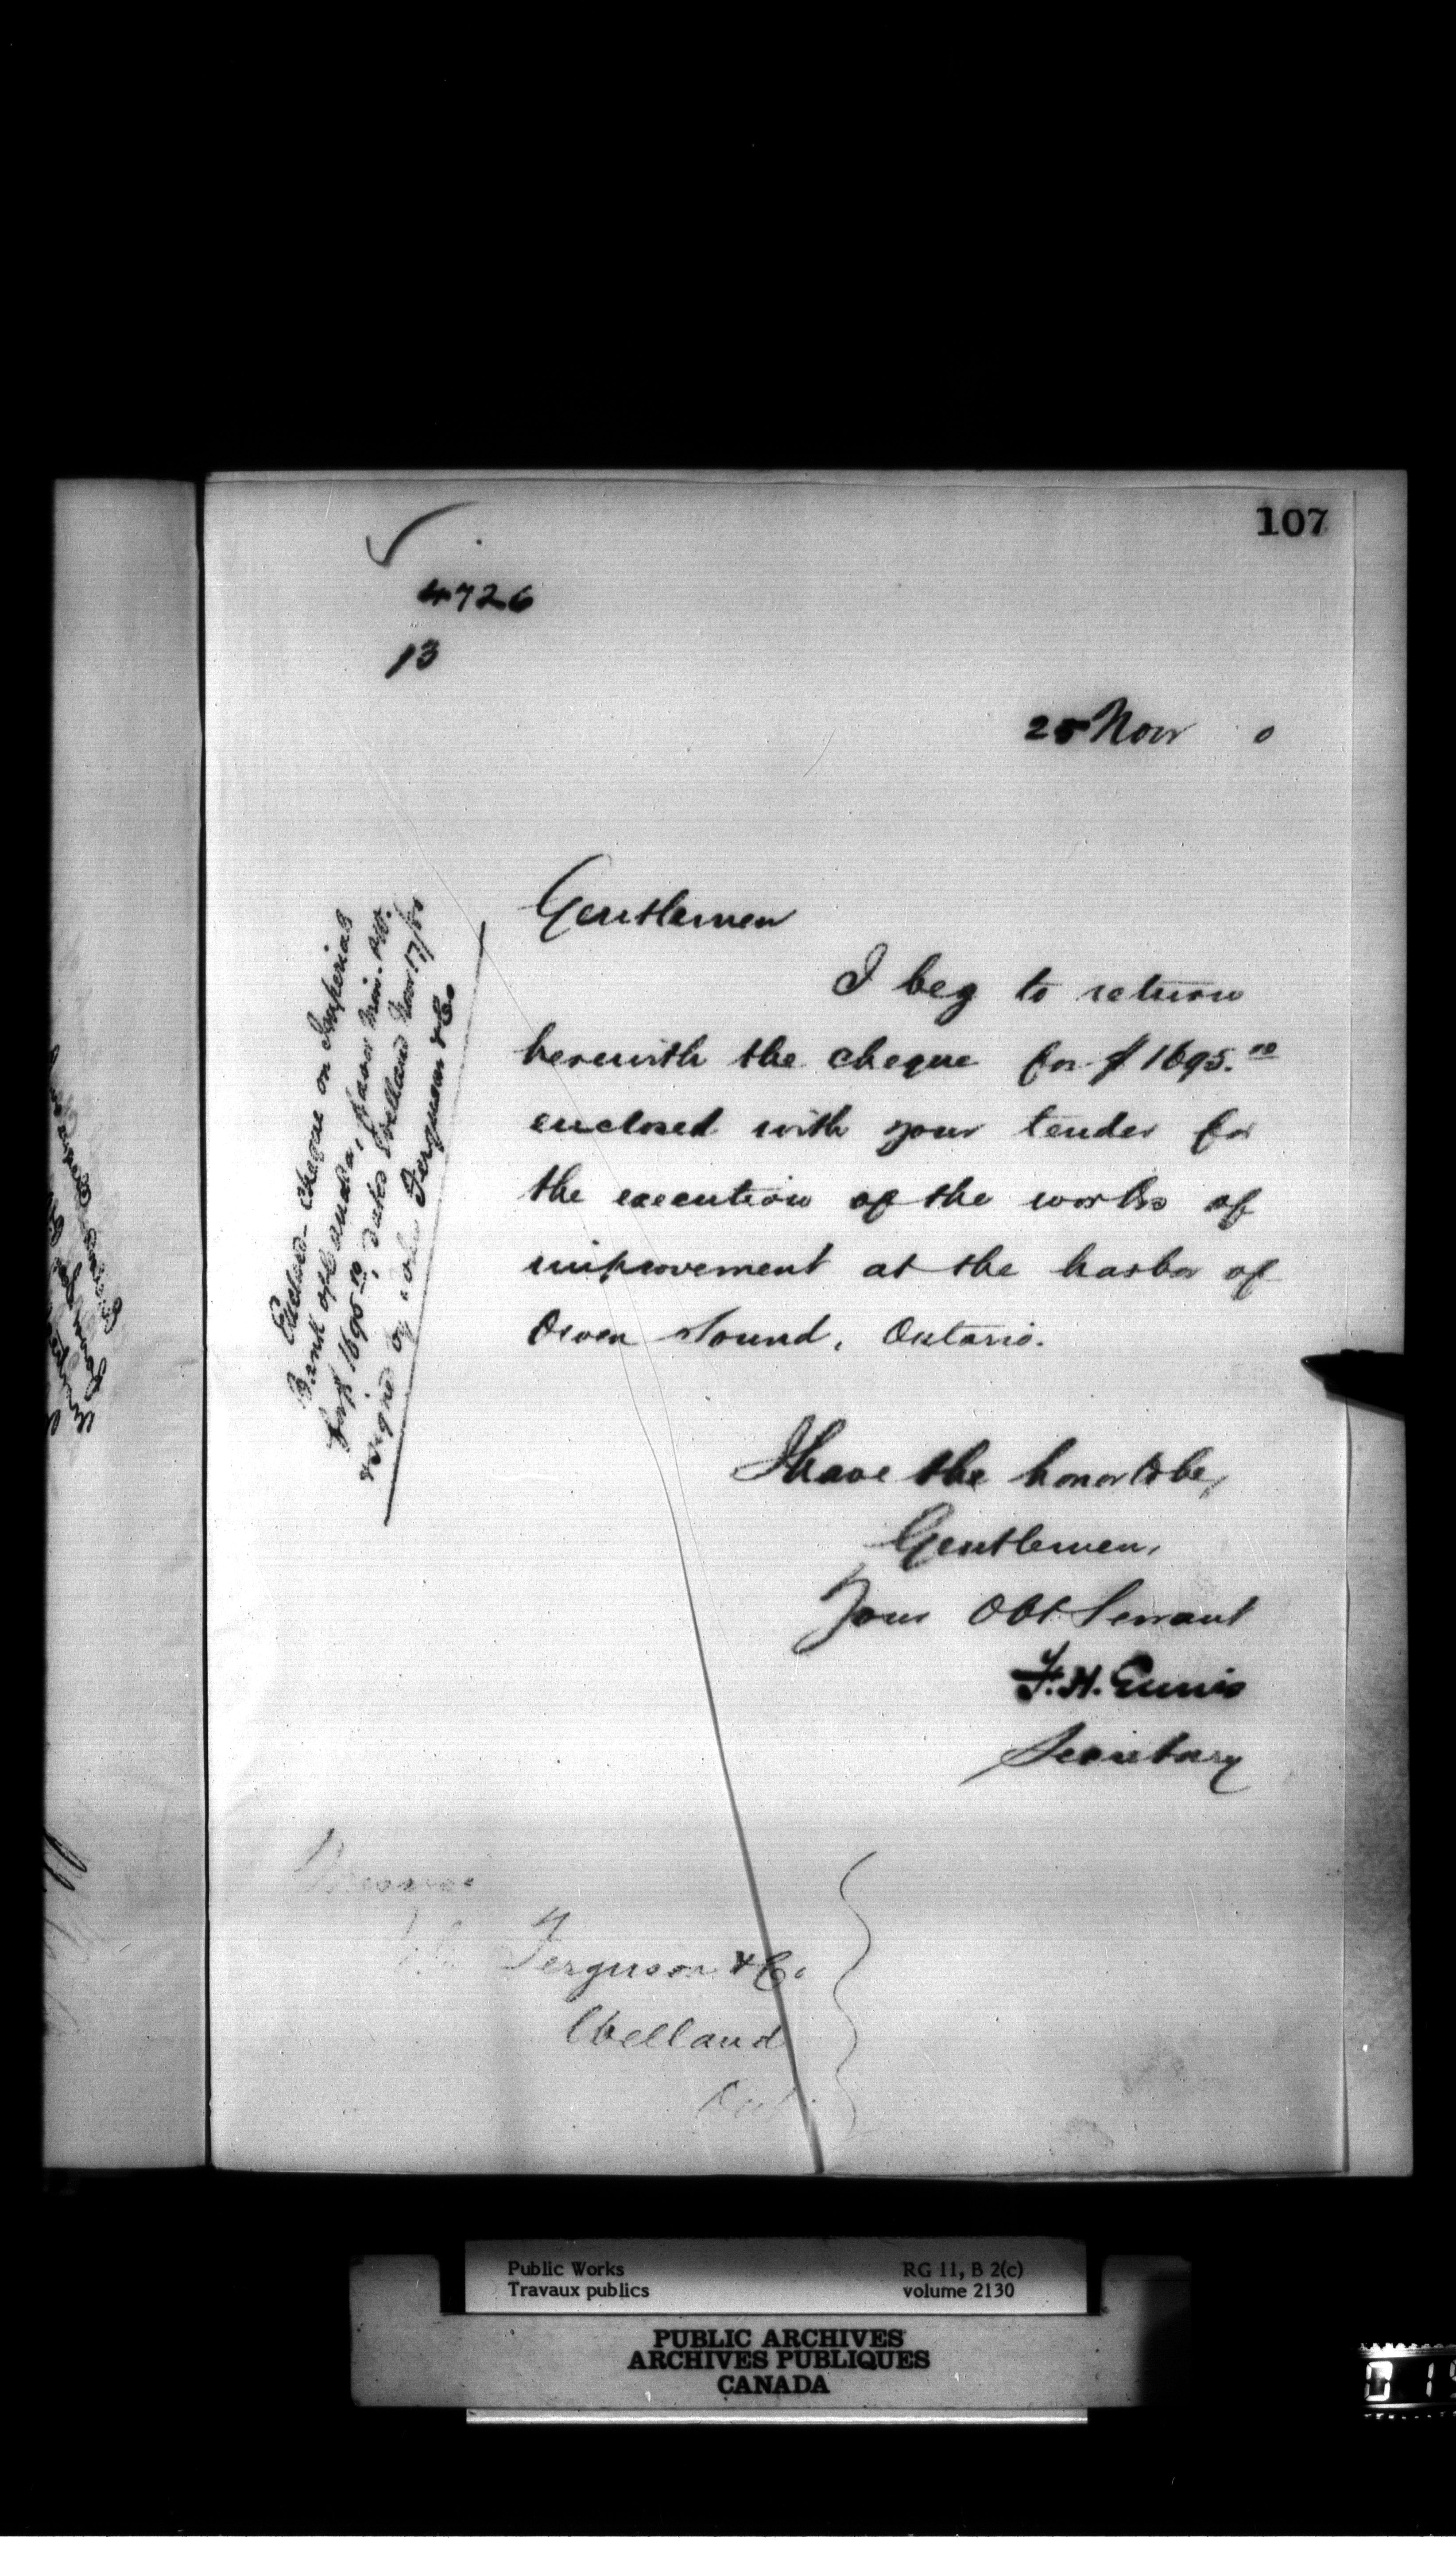 107
4726
13
25 Nov 0
Gentlemen
I beg to return
herewith the cheque for $1695.00
enclosed with your tender for
the execution of the works of
improvement at the harbor of
Owen Sound, Ontario.
I have the honor to be,
Gentlemen,
Your Obt Servant
F. H. Ennis
Secretary
Enclosed - Cheque on Imperial
Bank of Canada, favor Min. P.W.
for $1695.00, dated Welland Nov 17/80
& signed by John Ferguson & Co
Messrs
Ferguson & Co.
Welland
Ont.
Public Works
Travaux publics
RG 11, B 2(c)
volume 2130
PUBLIC ARCHIVES
ARCHIVES PUBLIQUES
CANADA